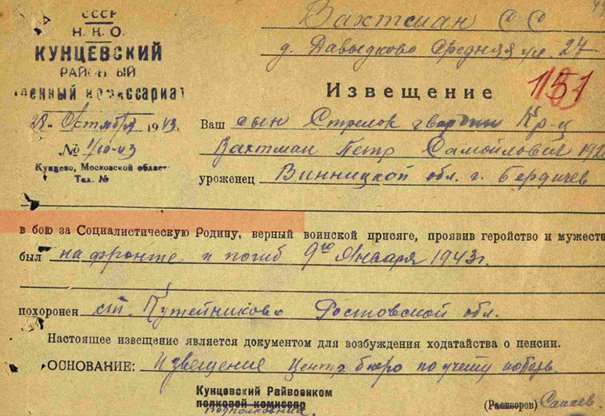 СССР
Н. К. О.
КУНЦЕВСКИЙ
РАЙОННЫЙ
военный комиссариат
28 Октября 1943
№
Кунцево, Московской област
Тел. №
Вахтман С С
д. Давыдково Средняя ул 27
Извещение
1151
Ваш сын Стрелок гвардии Кр-ц
Вахтман Петр Самойлович 19
уроженец Винницкой обл. г. Бердичев
в бою за Социалистическую Родину, верный воинской присяге, проявив геройство и мужеств
был на фронте и погиб 9го Января 1943г.
похоронен ст. Кутейниково Ростовской обл.
Настоящее извещение является документом для возбуждения ходатайства о пенсии.
ОСНОВАНИЕ: Извещение Центр бюро по учету
Кунцевский Райвоенком
полковой комиссар
подполковник
(Растворов)